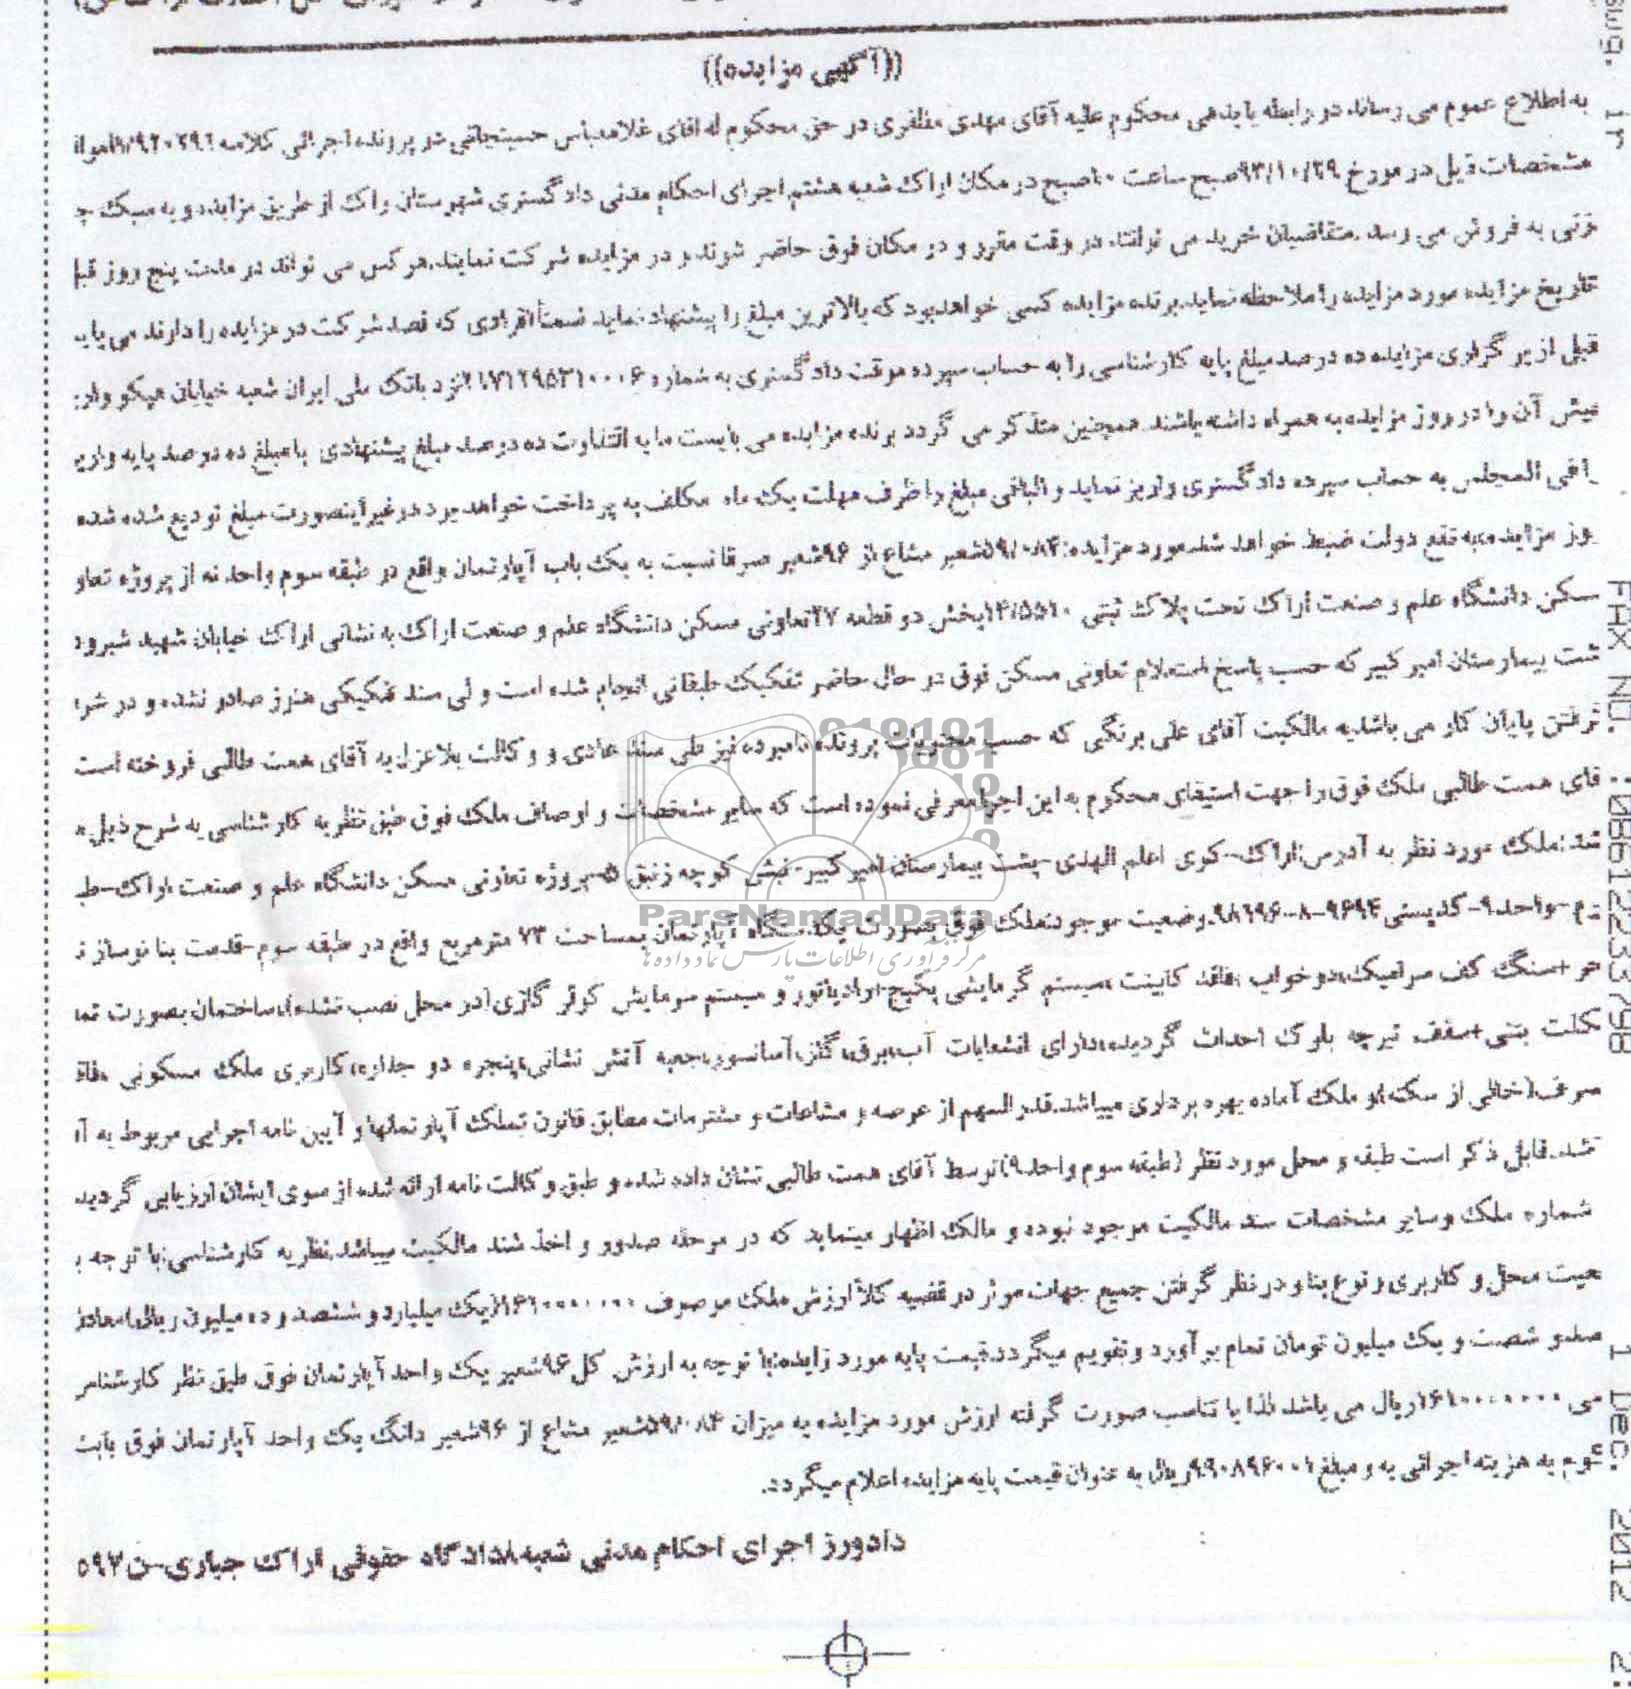 ((آگهی مزایده))
به اطلاع عموم می رساند در رابطه با بدهی محکوم علیه آقای مهدی مظفری در حق محکوم له آقای غلامعباس در پرونده اجرائی کلاسه
مشخصات ذیل در مورخ ۹۳/۱۰/۲۹ صبح ساعت ۱۰ صبح در مکان اراک شعبه هشتم اجرای احکام مدنی دادگستری شهرستان اراک از طریق مزایده و به
به فروش می رسد .متقاضیان خرید می توانند در وقت مقرر و در مکان فوق حاضر شوند و در مزایده شرکت نمایند.هر کس می تواند در مدت پنج روز قبل
تاریخ مزایده مورد مزایده را ملاحظه نماید.برنده مزایده کسی خواهدبود که بالاترین مبلغ را پیشنهاد نماید ضمناً افرادی که قصد شرکت در مزایده را دارند می بایس
قبل از بر گزاری مزایده ده درصد مبلغ پایه کارشناسی را به حساب سپرده موقت دادگستری به شماره ۲۱۷۱۲۹۵۳۱۰۰۰۶ نزد بانک ملی ایران شعبه خیابان هپکو واریز
فیش آن را در روز مزایده به همراه داشته باشند. همچنین متذکر می گردد برنده مزایده می بایست ما به التفاوت ده درصد مبلغ پیشنهادی با مبلغ ده درصد پایه واریز
را فی المجلس به حساب سپرده دادگستری واریز نماید و الباقی مبلغ را ظرف مهلت یک ماه مکلف به پرداخت خواهد بود در غیر اینصورت مبلغ تودیع شده شده
روز مزایده به نفع دولت ضبط خواهد شد.مورد مزایده: ۵۹/۰۸۴ شعیر مشاع از ۹۶ شعیر عرفا نسبت به یک باب آپارتمان واقع در طبقه سوم واحد نه از پروژه تعاو
مسکن دانشگاه علم و صنعت اراک تحت پلاک ثبتی ۱۴/۵۵۱۰ بخش دو قطعه ۲۷ تعاونی مسکن دانشگاه علم و صنعت اراک به نشانی اراک خیابان شهید شیرود
پشت بیمارستان امیر کبیر که حسب پاسخ استعلام تعاونی مسکن فوق در حال حاضر تفکیک طبقاتی انجام شده است ولی سند تفکیکی هنوز صادر نشده و در شر
گرفتن پایان کار می باشد.به مالکیت آقای علی برنگی که حسب محتویات پرونده نامبرده نیز طی سند عادی و وکالت بلاعزل به آقای همت طالبی فروخته است
آقای همت طالبی ملک فوق را جهت استیفای محکوم به این اجرا معرفی نموده است که سایر مشخصات و اوصاف ملک فوق طبق نظریه کارشناسی به شرح ذیل
شد:ملک مورد نظر به آدرس:اراک-کوی اعلم الهدی-پشت بیمارستان امیرکبیر-نبش کوچه زنبق ۵-پروژه تعاونی مسکن دانشگاه علم و صنعت اراک-طب
-واحد ۹-کدپستی وضعیت موجود:ملک فوق بصورت یکدستگاه آپارتمان بمساحت ۷۳ مترمربع واقع در طبقه سوم-قدمت بنا نوساز
+سنگ کف سرامیک،دو خواب ،فاقد کابینت ،سیستم گرمایشی پکیج+رادیاتور و سیستم سرمایش کولر گازی(در محل نصب نشده)،ساختمان بصورت
اسکلت بتنی+سقف تیرچه بلوک احداث گردیده،دارای انشعابات آب،برق،گاز،آسانسور،جعبه آتش نشانی،پنجره دو جداره،کاربری ملک مسکونی ،فاق
(خالی از سکنه)و ملک آماده بهره برداری میباشد.قدرالسهم از عرصه و مشاعات و مشترمات مطابق قانون تملک آپارتمانها و آیین نامه اجرایی مربوط به آن
.قابل ذکر است طبقه و محل مورد نظر (طبقه سوم واحد۹)توسط آقای همت طالبی نشان داده شده و طبق وکالت نامه ارائه شده از سوی ایشان ارزیابی گردید
شماره ملک وسایر مشخصات سند مالکیت موجود نبوده و مالک اظهار مینماید که در مرحله صدور و اخذ سند مالکیت میباشد.نظریه کارشناسی:با توجه ب
محل و کاربری و نوع بنا و در نظر گرفتن جمیع جهات موثر در قضیه کلاً ارزش ملک موصوف ۱۶۱۰۰۰۰۰۰۰(یک میلیارد و ششصد و ده میلیون ریال)معادل
صدو شصت و یک میلیون تومان تمام بر آورد و تقویم میگردد.قیمت پایه مورد زایده:با توجه به ارزش کل ۹۶ شعیر یک واحد آپارتمان فوق طبق نظر کارشناس
۱۶۱۰۰۰۰۰۰۰ریال می باشد لذا با تناسب صورت گرفته ارزش مورد مزایده به میزان ۵۹/۰۸۴ شعیر مشاع از ۹۶ شعیر دانگ یک واحد آپارتمان فوق بابت
به هزینه اجرائی به و مبلغ ۹۹۰۸۹۶۰۰۱ ریال به عنوان قیمت پایه مزایده اعلام میگردد.
دادورز اجرای احکام مدنی شعبه۸دادگاه حقوقی اراک جباری-ن۵۹۷
ParsNamadData
مرکز فرآوری اطلاعات پارس نماد داده ها
FAX NO. :08612233798
1 Dec. 2012